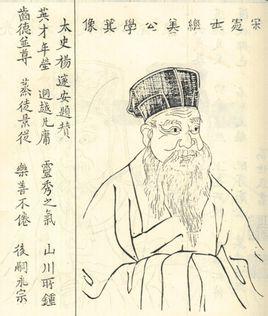 宋憲士緦美公學龔像
太史楊邃安題贊
英才年瑩 迥越凡庸 靈秀之氣 山川所鍾
齒德並尊 蒸徒景從 樂善不倦 後嗣永宗